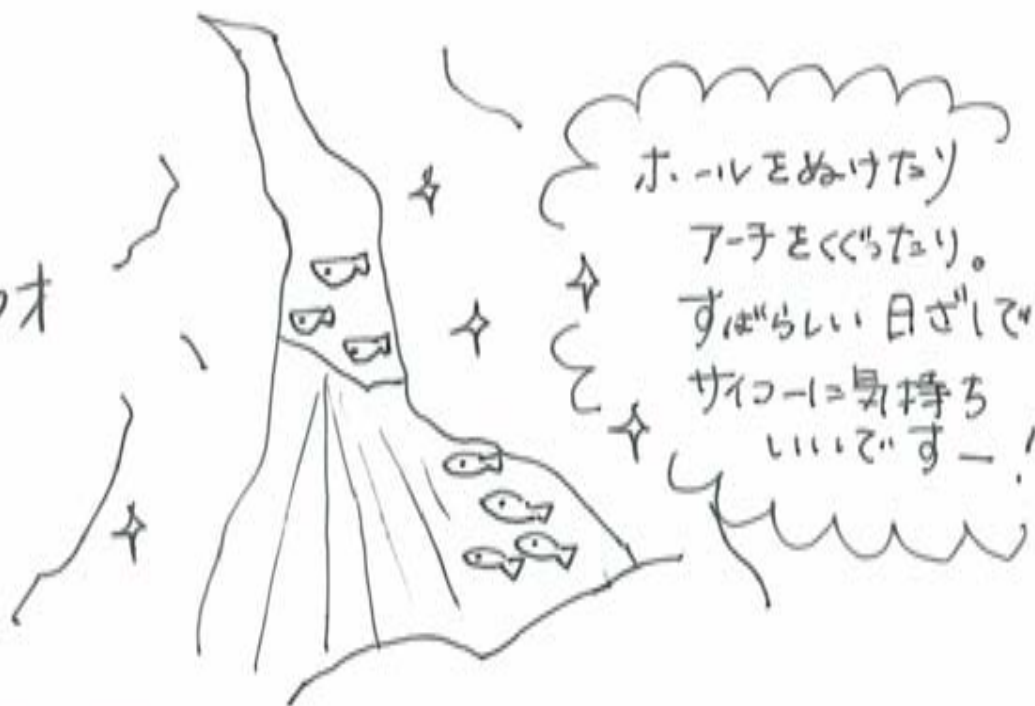 ホールをぬけたり
アーチをくぐったり。
すばらしい日ざしで
サイコーに気持ち
いいですー!